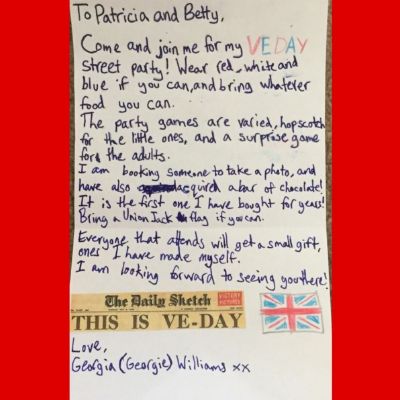 To Patricia and Betty,
Come and join me for my VE DAY
street party! Wear red, white and
blue if you can, and bring whatever
food you can.
The party games are varied, hopscotch
for the little ones, and a surprise game
for the adults.
I am booking someone to take a photo, and
have also acquired a bar of chocolate!
It is the first one I have bought for years!
Bring a Union Jack flag if you can.
Everyone that attends will get a small gift,
ones I have made myself.
I am looking forward to seeing you there!
The Daily Sketch
THIS IS VE-DAY
Love,
Georgia (Georgie) Williams xx